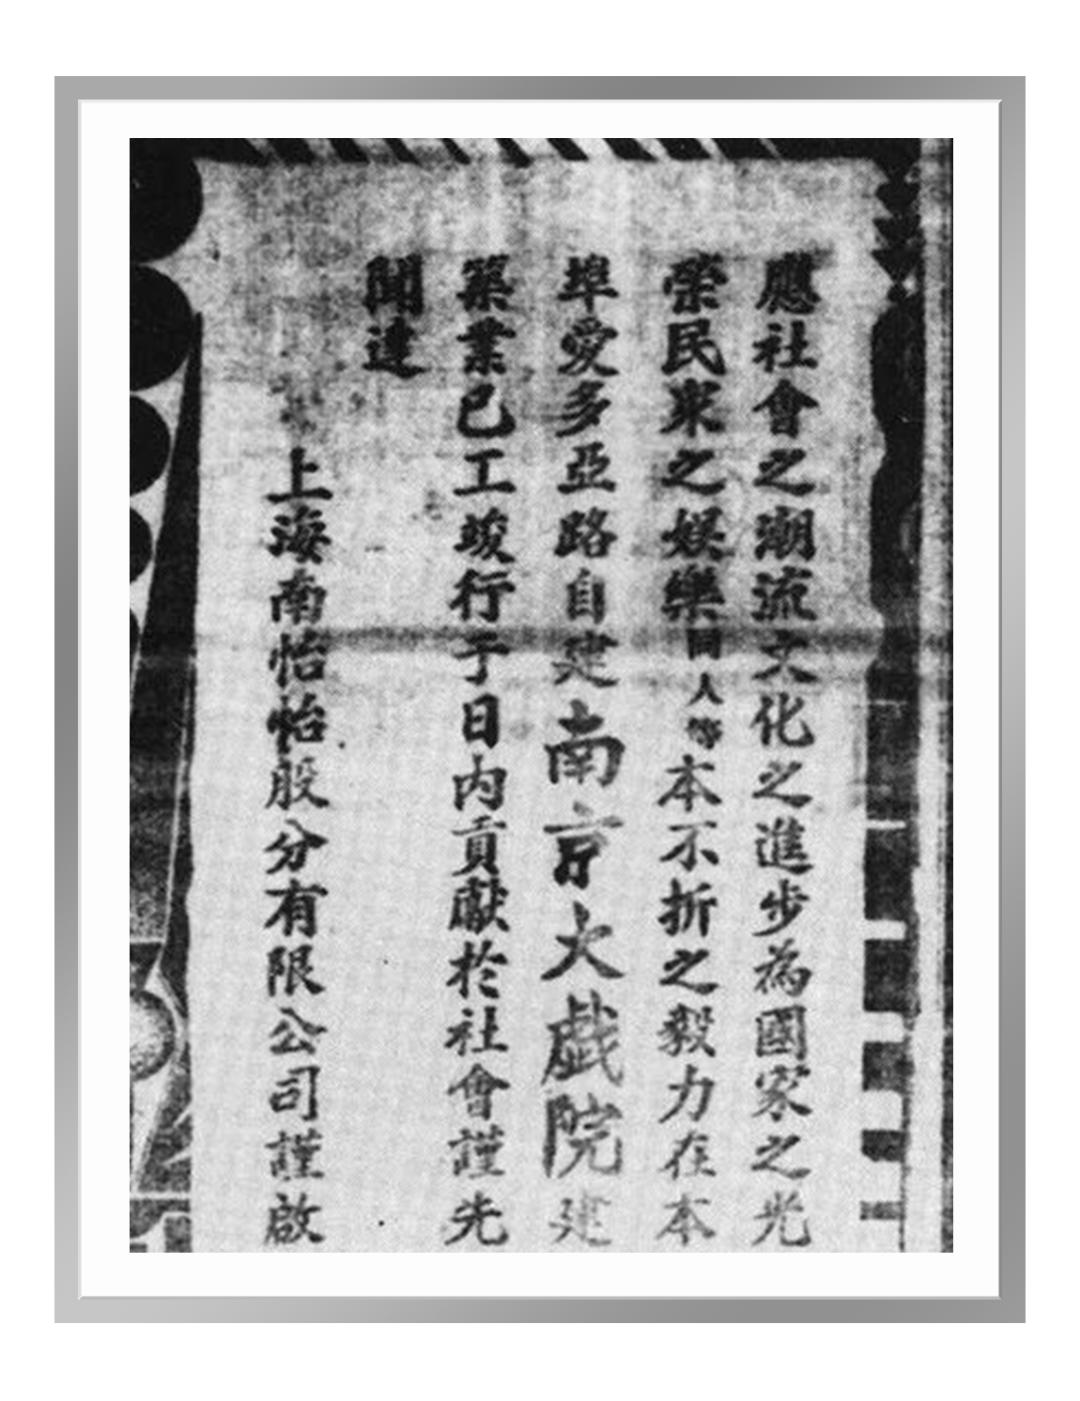 應社會之潮流文化之進步為國家之光
榮民衆之娛樂同人等本不折之毅力在本
埠愛多亞路自建南京大戯院建
築業已工竣行于日內貢獻於社會謹先
聞達
上海南怡怡股分有限公司謹啟